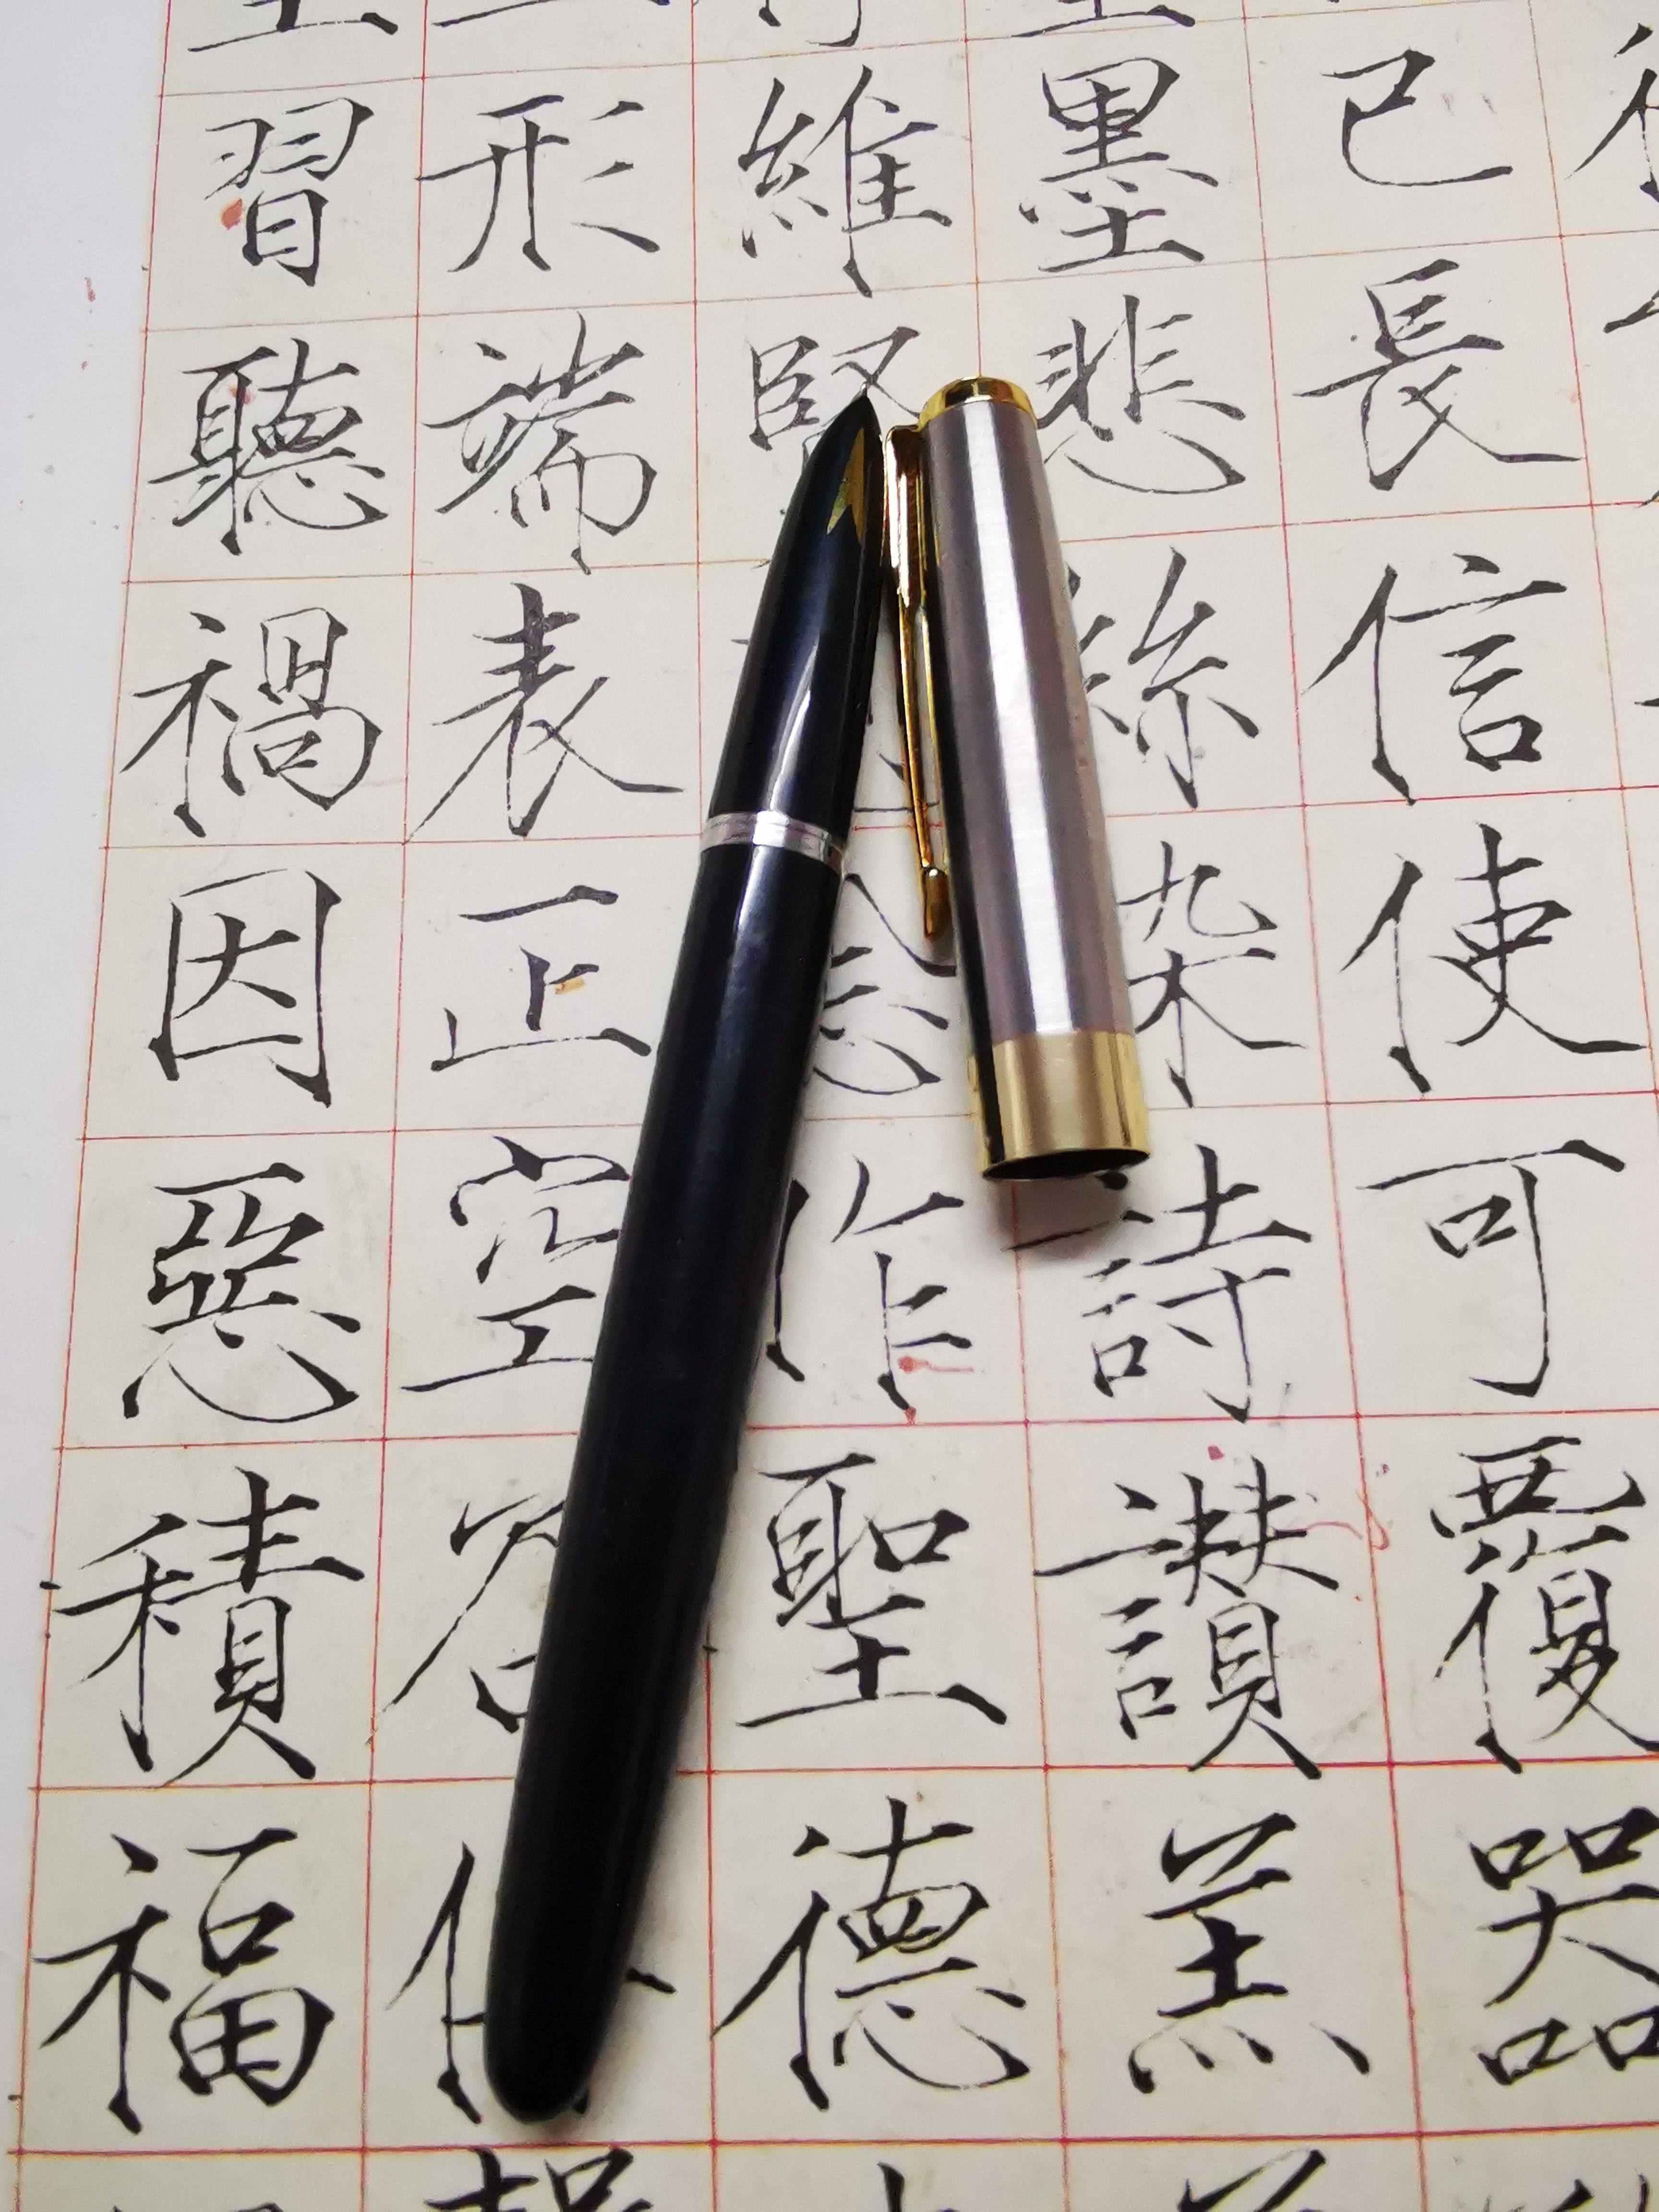 己長信使可覆器
墨悲絲染詩讚羔
維賢念作聖德
形端表正空谷
習聽禍因惡積福